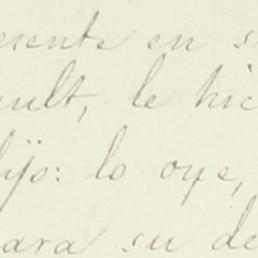 esente en s
ult, le hic
hijo: lo oye,
ara su de